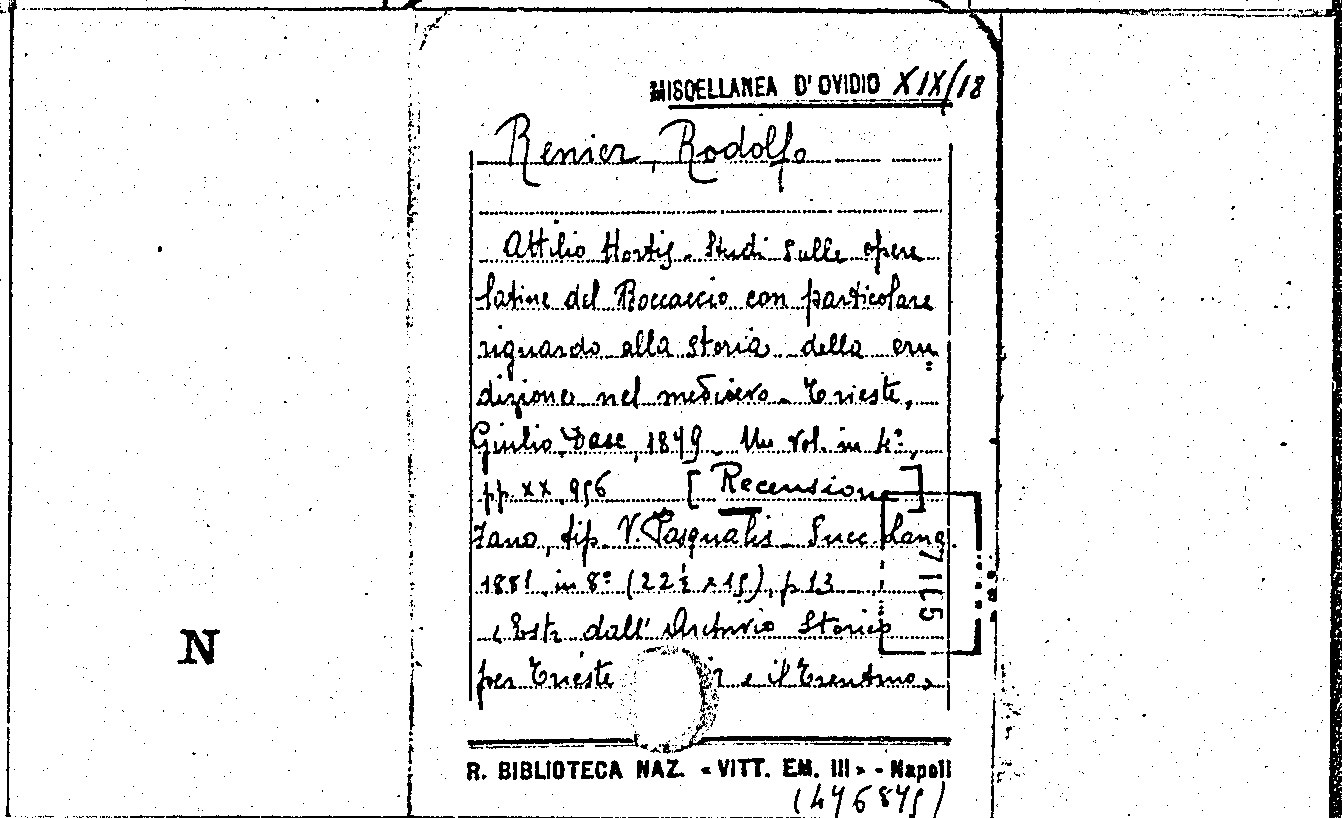 MISCELLANEA D'OVIDIO XIX/18
Renier, Rodolfo
Attilio Hortis. Studi sulle opere
latine del Boccaccio con particolare
riguardo alla storia della eru=
dizione nel medioevo. Trieste,
Giulio Dase, 1879. Un vol. in 4°,
pp. XX. 956 [Recensione]
Fano, tip. V. Pasqualis. Succ. Lana.
1881, in 8° (22½ x 15), p 13
(Estr. dall' Archivio Storico
per Trieste e il Trentino.
7115
N
R. BIBLIOTECA NAZ. «VITT. EM. III» - Napoli
(476875)